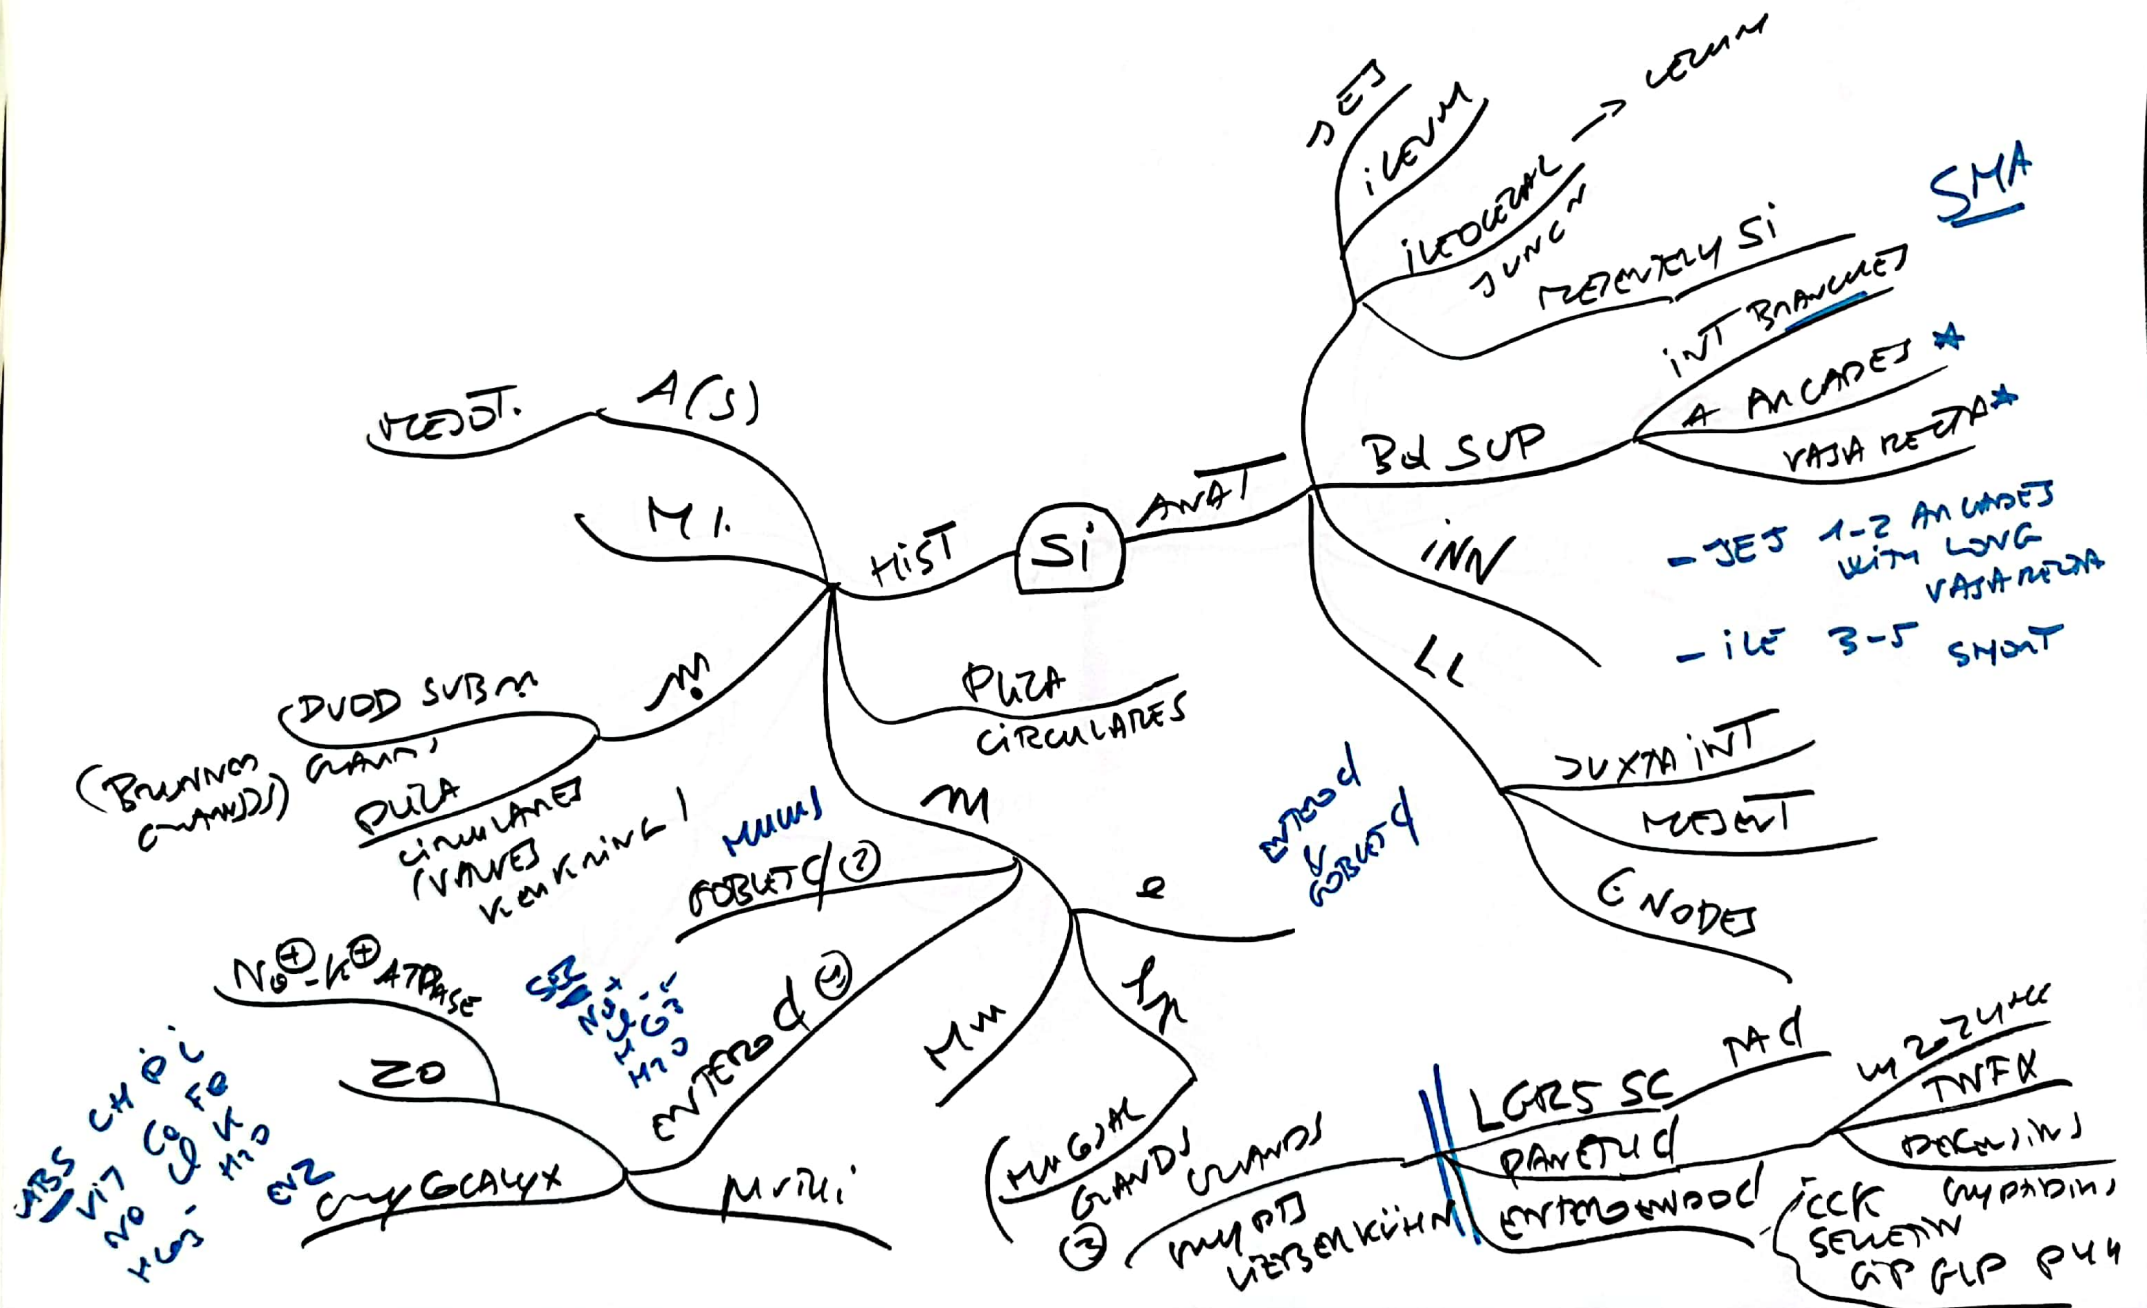 Si
ANAT
JEJ
ILEUM
ILEOCECAL
JUNC N
→ CECUM
MESENTERY Si
Bd SUP
INT BRANCHES
SMA
A ARCADES *
VASA RECTA *
- JEJ 1-2 ARCADES
WITH LONG
VASA RECTA
- ILE 3-5 SHORT
INN
LL
JUXTA INT
MESENT
C NODES
HIST
A(S)
MESOT.
M
DUOD SUB m
GLAND
(BRUNNER
GLANDS)
PLICA
CIRCULARES
(VALVES
KERKRING)
PLICA
CIRCULARES
m
MUCUS
GOBLET C (2)
ENTERO C (1)
SEC
Na+ Cl-
HCO3-
H2O
Na+-K+ ATPASE
ZO
GLYCOCALYX
ENZ
MVILLI
ABS CH P L
VIT Ca Fe
Na Cl K
HCO3- H2O
e
ENTERO C
&
GOBLET C
Lp
Mm
MUCOSAL
GLANDS
(3)
GLANDS
CRYPTS
LIEBERKÜHN
LGR5 SC
TA C
PANETH C
LYSOZYME
TNFα
DEFENSINS
CRYPTIDINS
ENTEROENDO C
CCK
SECRETIN
GIP GLP PYY